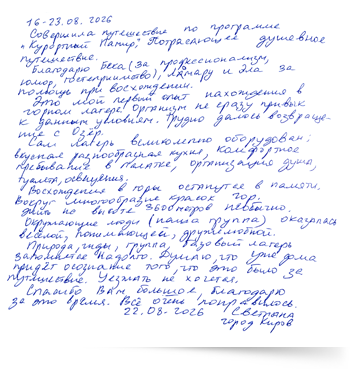 16-23.08.2026
Совершила путешествие по программе
"Курортный Памир". Потрясающее душевное
путешествие.
Благодарю Бека (за профессионализм,
юмор, гостеприимство), и Эла за
помощь при восхождении.
Это мой первый опыт нахождения в
горном лагере. Организм не сразу привык
к данным условиям. Трудно далось возвраще-
ние с озёр.
Сам лагерь великолепно оборудован;
вкусная разнообразная кухня, комфортное
пребывание в палатке, организация душа,
туалета, освещения.
Восхождения в горы останутся в памяти.
Вокруг многообразие красок гор.
Жить на высоте 3600 метров необычно.
Окружающие люди (наша группа) оказалась
весёлой, понимающей, дружелюбной.
Природа, гиды, группа, базовый лагерь
запомнятся надолго. Думаю, что уже дома
придёт осознание того, что это было за
путешествие. Уезжать не хочется.
Спасибо Вам большое, благодарю
за это время. Всё очень понравилось.
22.08.2026 Светлана
город Киров